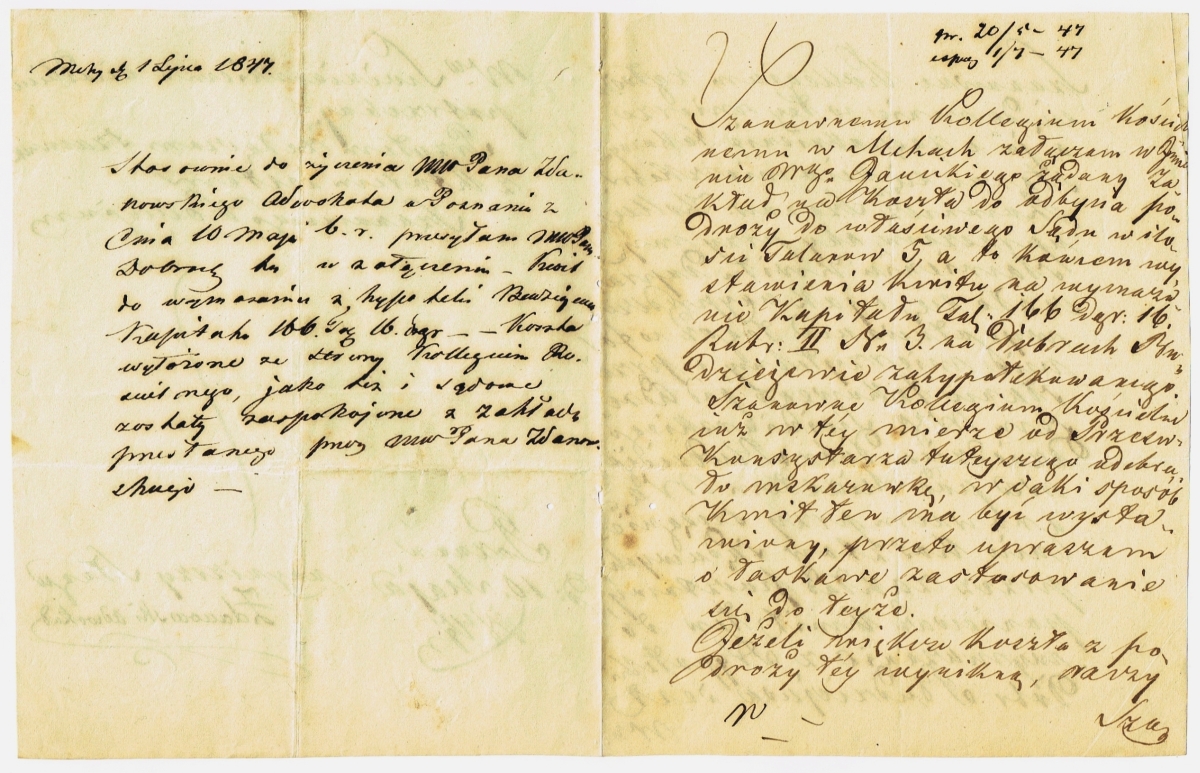 Mchy d. 1 Lipca 1847.
Stosownie do życzenia MW Pana Zda-
nowskiego Adwokata w Poznaniu z
dnia 10 Maja b. r. przesyłam MW Panu
Dobrod. tu w załączeniu Kwit
do wymazania z hypoteki
Kapitału 166 Tal 16 dgr — Koszta
wyłożone ze strony Kollegium Ko-
ścielnego, jako też i sądowe
zostały zaspokojone z zakładu
przesłanego przez MW Pana Zdanow-
skiego —
pr. 20/5 – 47
1/7 – 47
Szanownemu Kollegium Kościel
nemu w Mchach załączam w Imie
niu Wgo Gaueckiego żądany Za
kład na Koszta do odbycia po
droży do właściwego Sądu w ilo
ści Talarow 5, a to końcem wy
stawienia Kwitu na wymaza
nie Kapitału Tal: 166 dgr: 16.
Rubr: III No 3. na Dobrach
zahypotekowanego.
Szanowne Kollegium Kościelne
już w tey mierze od Przesw:
Konsystorza tuteyszego odebra
ło wskazowkę, w jaki sposób
Kwit ten ma być wysta-
wiony, przeto upraszam
o łaskawe zastosowanie
się do teyże.
Jeżeli większe koszta z po
droży téy wynikną, raczy
Sza